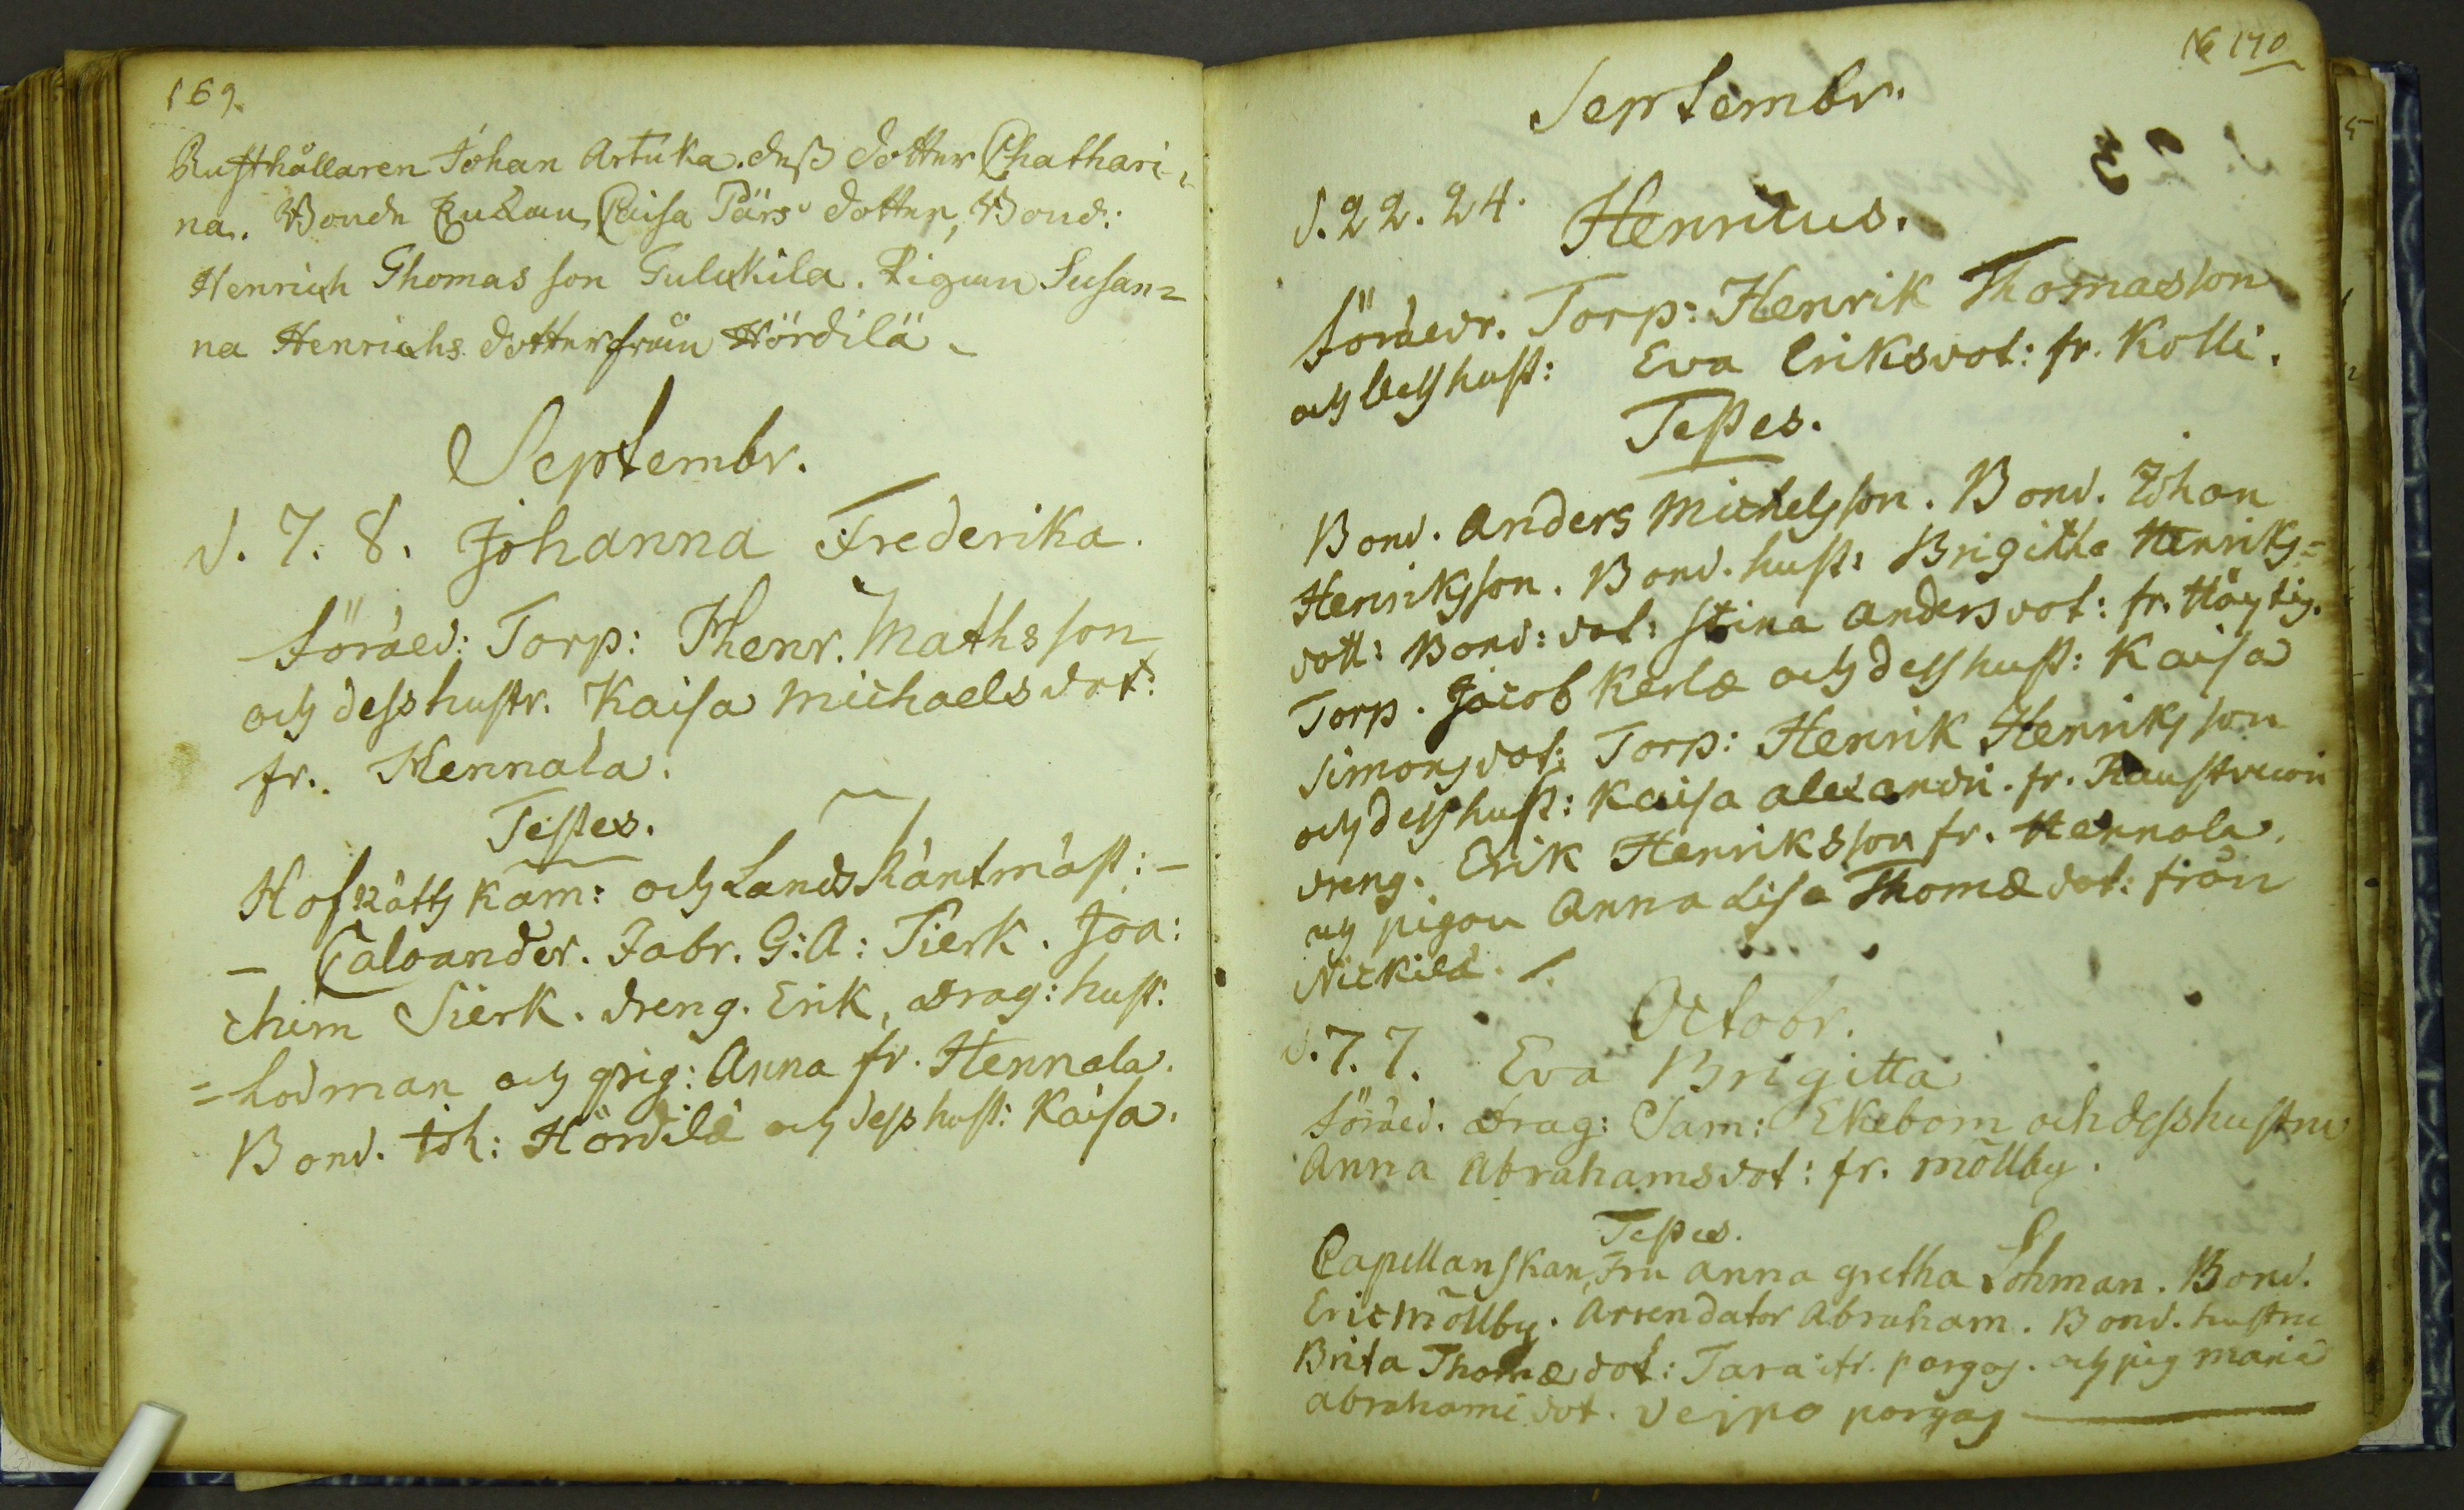 169.
Rusthållaren Johan Artuka. deß dotter Chathari-
na. Bonde Caisa Pärs dotter, Bond:
Henrich Thomas son Gulukila. Pigan Susan=
na Henrichs dotter från Hördilä
Septembr.
d. 7. 8. Johanna Frederika.
föräld: Torp: Henr. Mathsson
och dess hustr. Kaisa Michaelsdot:
fr. Hennala.
Testes.
Hofrätts Kam: och Lands Räntmäst:-
- Caloander. Fabr. G: A: Sierk. Joa:
chim Sierk. dreng. Erik, Drag: hust:
= Lodman och pig: Anna fr. Hennala.
Bond. Joh: Hördilä och dess hust: Kaisa.
170
Septembr.
d. 22. 24. Henricus.
föräldr. Torp: Henrik Thomasson
och dess hust: Eva Eriksdot: fr. Kolli.
Testes.
Bond. Anders Michelsson. Bond. Johan
Henriksson. Bond. hust: Brigitha Henriks=
dott: Bond: dot: Stina Andersdot: fr.
Torp. Jacob Kerlæ och dess hust: Kaisa
Simonsdot: Torp: Henrik Henriksson
och dess hust: Kaisa Alexandri. fr.
dreng. Erik Henriksson fr. Hennala.
och pigan Anna Lisa Thomædot: från
Nickilä.
Octobr.
d. 7. 7. Eva Brigitta
föräld. Drag: Sam: Ekebom och dess hustru
Anna Abrahamsdot: fr. Möllby.
Testes.
Capellanskan, Fru Anna Gretha Lohman. Bond.
Eric Möllby. Arrendator Abraham. Bond. hustru
Brita Thomædot: Tara fr. pargas. och pig Maria
Abrahami dot. Veipo pargas